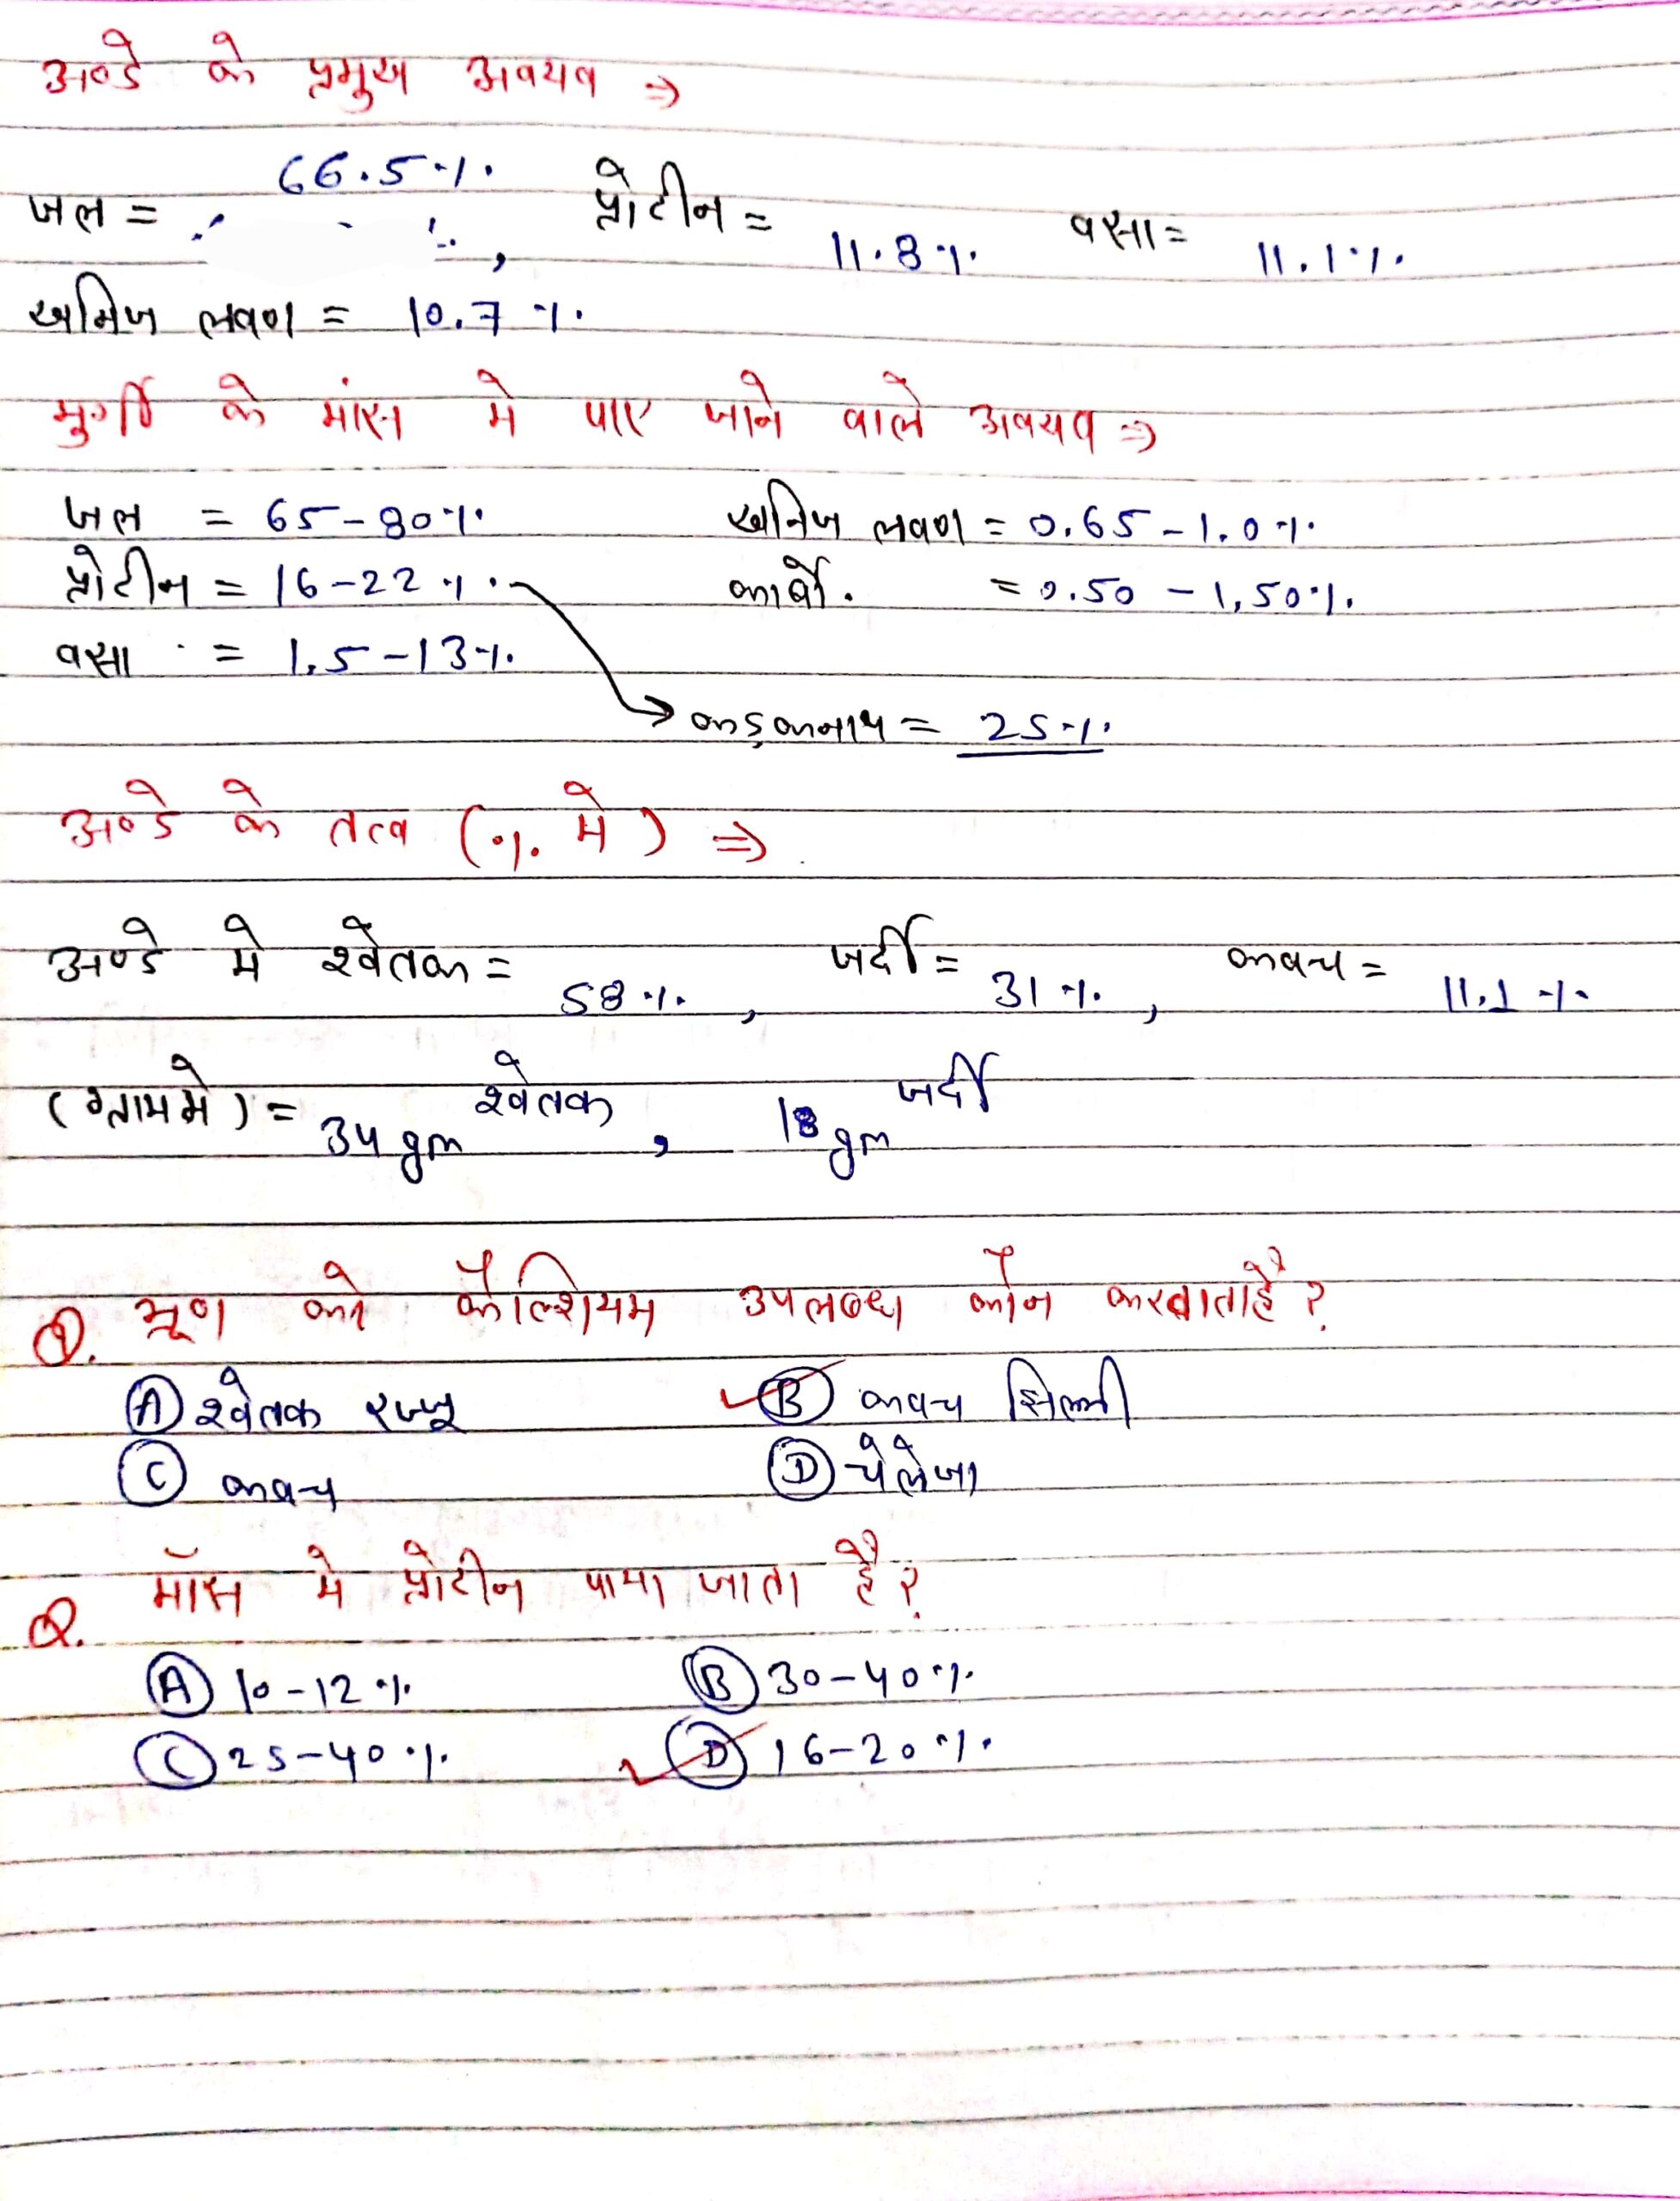 अण्डे के प्रमुख अवयव ⇒
जल = 66.5%, प्रोटीन = 11.8% वसा = 11.1%
खनिज लवण = 10.7%
मुर्गी के मांस मे पाए जाने वाले अवयव ⇒
जल = 65-80% खनिज लवण = 0.65-1.0%
प्रोटीन = 16-22% कार्बो. = 0.50-1.50%
वसा = 1.5-13%
→ कड़कनाथ = 25%
अण्डे के तत्व (% मे) ⇒
अण्डे मे श्वेतक = 58%, जर्दी = 31%, कवच = 11.1%
(ग्राम मे) = 34 gm श्वेतक, 18 gm जर्दी
Q. भ्रूण को कैल्शियम उपलब्ध कौन करवाता है?
(A) श्वेतक रज्जू (B) कवच झिल्ली
(C) कवच (D) चेलेजा
Q. मॉस मे प्रोटीन पाया जाता है?
(A) 10-12% (B) 30-40%
(C) 25-40% (D) 16-20%